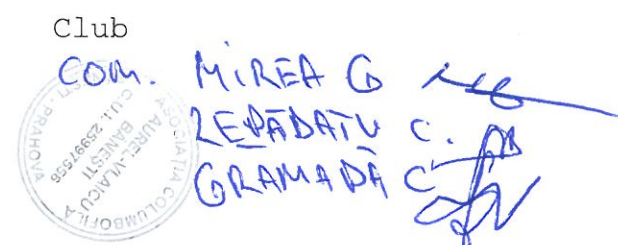 Club
COM. MIREA G
LEPĂDATU C.
GRAMADĂ C
ASOCIAȚIA COLUMBOFILA
AUREL-VLAICU
BANESTI
C.U.I. 25997556
BANESTI - PRAHOVA